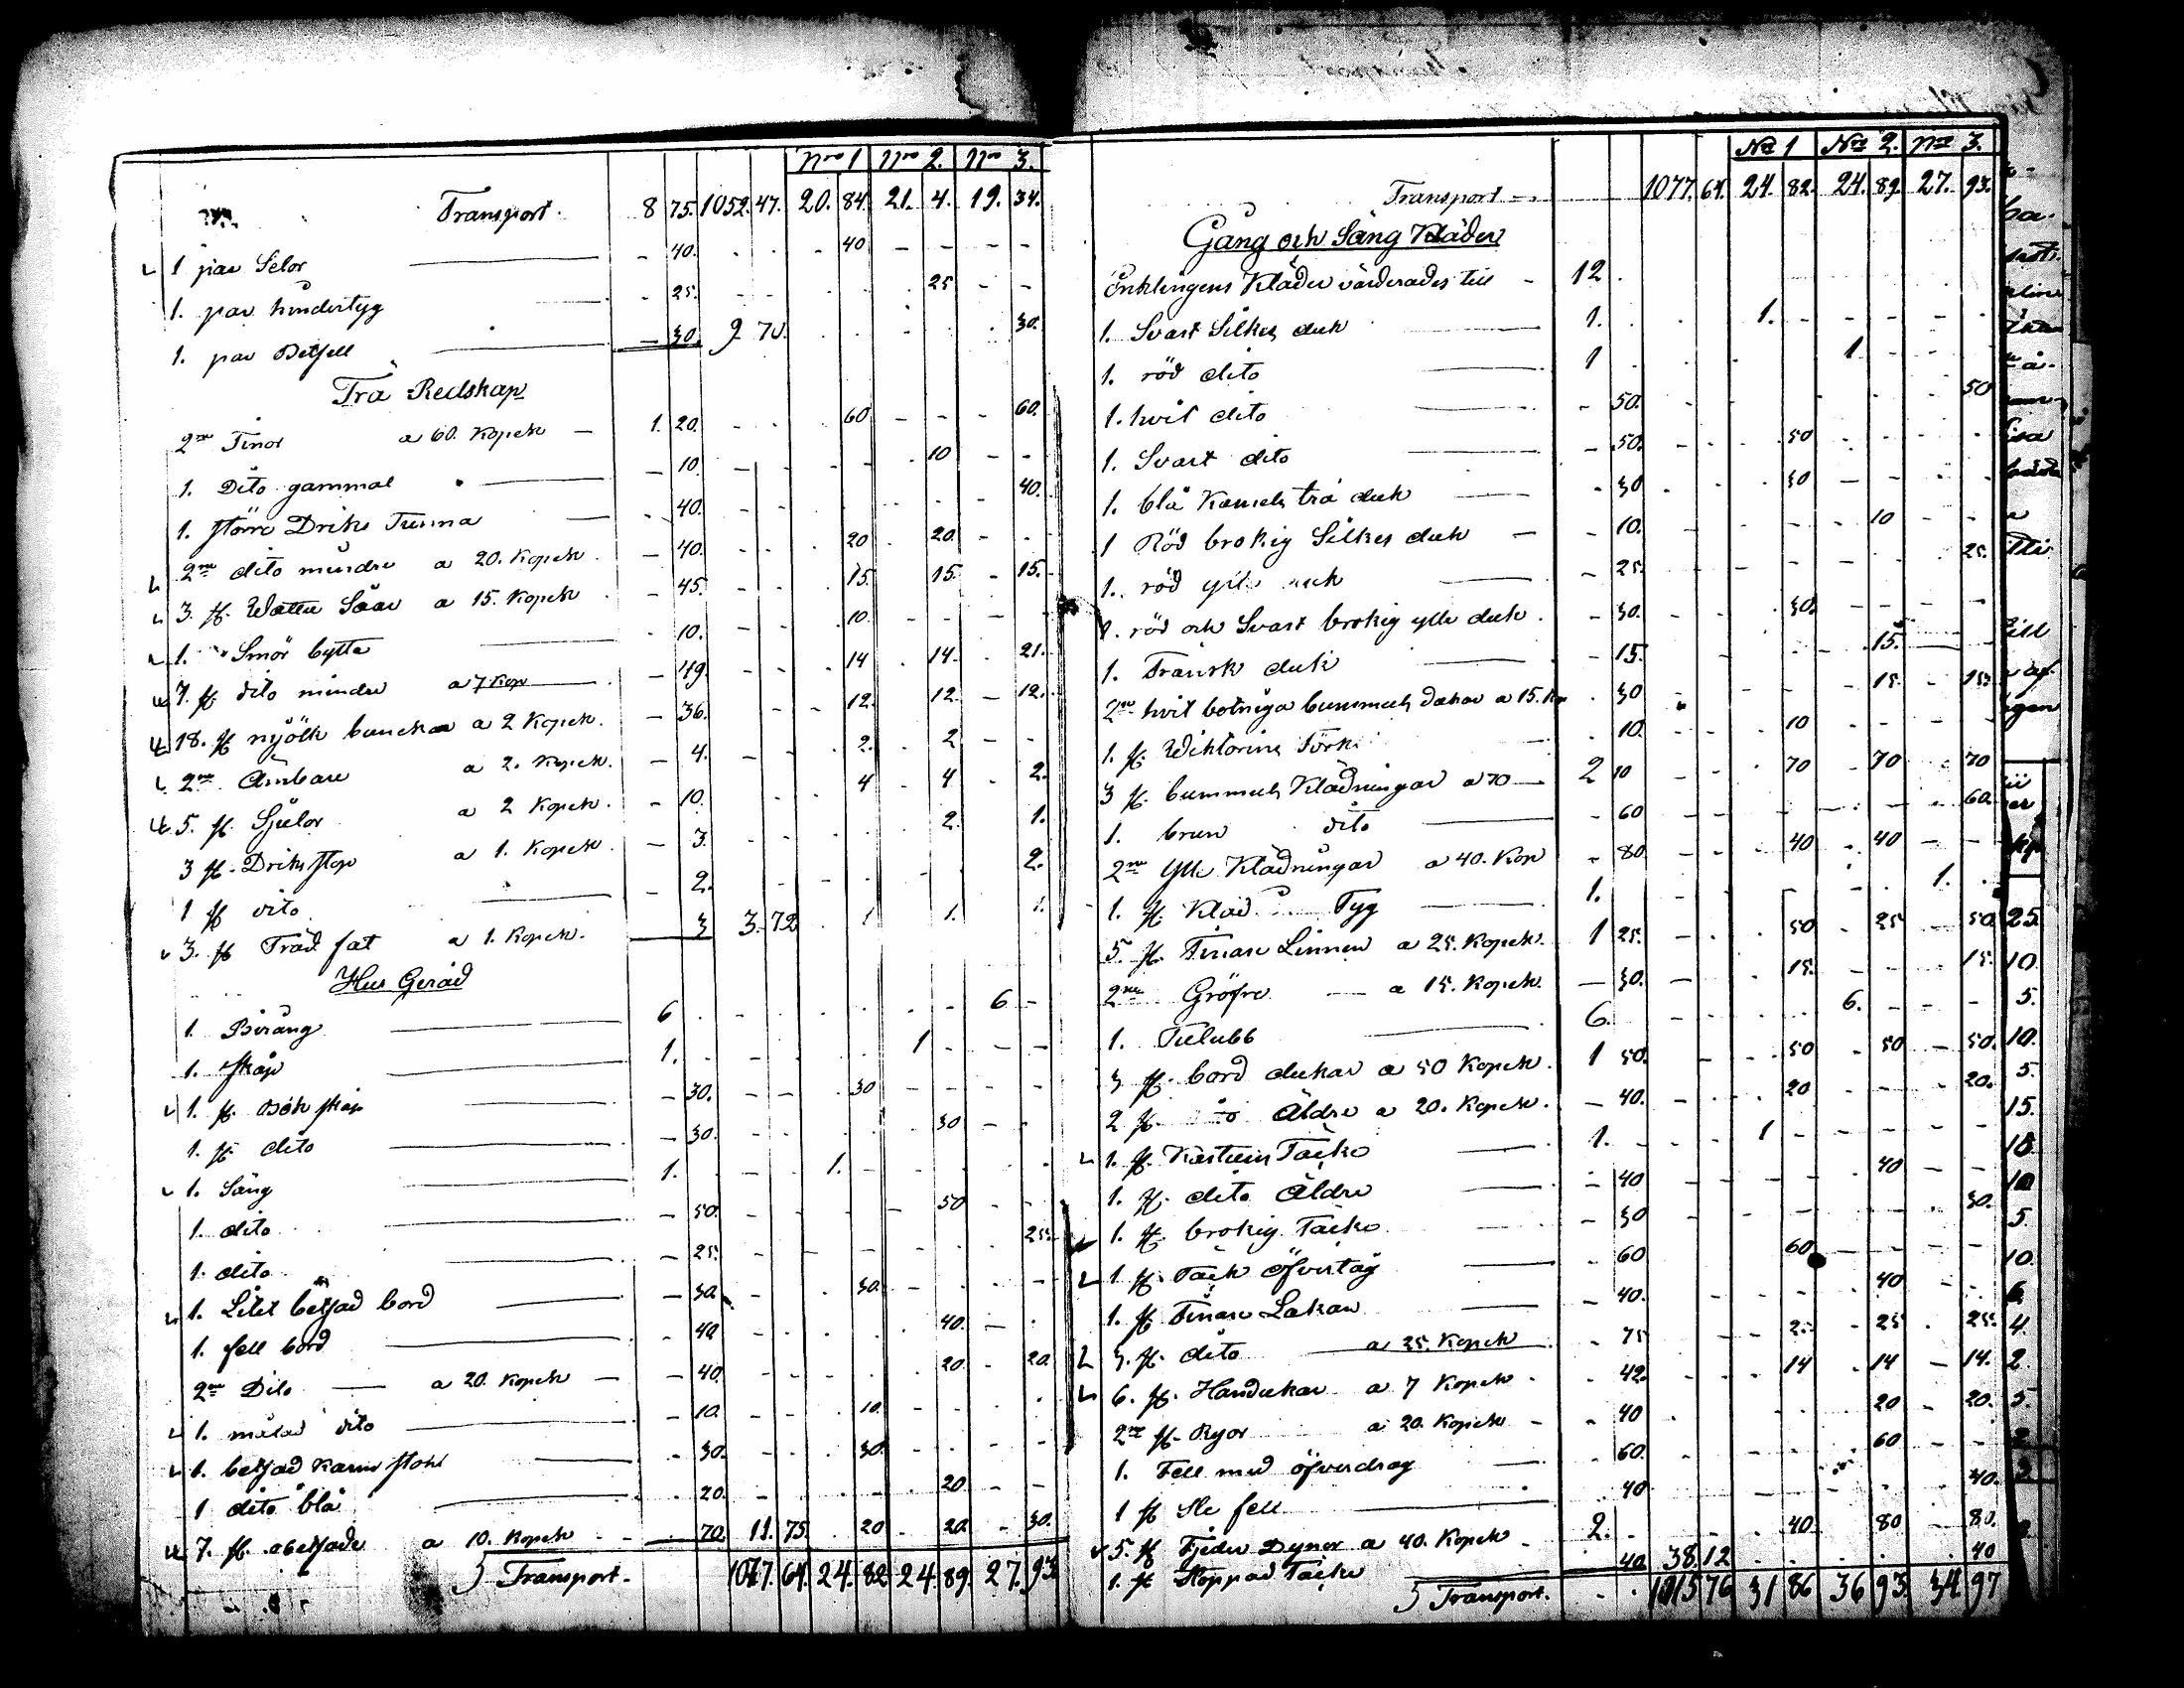 Nro 1 Nro 2. Nro 3.
Transport. 8 75. 1052. 47. 20. 84 21. 4. 19. 34.
1 par Selor - 40. 40
1. par hundertyg - 25. 25
1. par Betsell - 30. 9 70. 30.
Trä Redskap
2ne Tinor a 60. Kopek - 1. 20. 60 60.
1. Dito gammal - 10. 10
1. större Driks Tunna - 40. 40.
2ne dito mindre a 20. Kopek - 40. 20 20
3. st. Watten Såar a 15. Kopek - 45. 15. 15. 15.
1. Smör bytta - 10. 10.
7. st. dito mindre a 7 Kop - 49. 14 14. 21.
18. st mjölk bunckar a 2 Kopek. - 36. 12. 12. 12.
2ne Ämbare a 2. Kopek. - 4. 2. 2
5. st. Sjelor a 2 Kopek. - 10. 4 4 2.
3 st. Driks stop a 1. Kopek - 3. 2. 1.
1 st dito - 2. 2.
3. st Träd fat a 1. Kopek. 3 3. 72 1 1. 1.
Hus Geråd
1 Biräng 6 6
1. skåp 1. 1
1. st. Bok skåp - 30. 30
1. st. dito - 30. 30
1. Säng 1. 1.
1. dito - 50. 50
1. dito - 25. 25.
1. Litet betsad bord - 30. 30.
1. fell bord - 40 40.
2ne Dito a 20. Kopek - 40. 20. 20.
1. målad dito - 10. 10.
1. betsad Karm stohl - 30. 30.
1 dito blå - 20. 20
7. st. obetsade a 10. Kopek - 70. 11. 75. 20 20. 30.
Transport. 1077. 64. 24. 82 24. 89. 27. 93
Nro 1 Nro 2. Nro 3.
Transport 1077. 64. 24. 82. 24. 89. 27. 93.
Gång och Säng Kläder
Enklingens Kläder värderades till - 12
1. Svart Silkes duk 1. 1.
1. röd dito 1 1
1. hvit dito - 50. 50
1. Svart dito - 50. 50
1. blå Kamels trå duk - 30 30
1 Röd brokig Silkes duk - 10. 10
1. röd duk - 25. 25.
1. röd och Svart brokig ylle duk - 30. 30.
1. Fransk duk - 15. 15.
2ne hvit botniga bummuls dukar a 15. Kop 30 15. 15.
1. st. 10. 10
3 st. bummuls Klädningar a 70 2 10 70 70 70
1. brun dito - 60 60.
2ne Ylle Klädningar a 40. Kop - 80. 40 40
1. st. Kläd Tyg 1. 1.
5. st. Finare Linnen a 25. Kopek. 1 25. 50 25 50.
2ne Gröfre a 15. Kopek. - 30. 15. 15.
1. Tulubb 6. 6.
3 st. bord dukar a 50 Kopek. 1 50. 50 50 50.
2 st. Äldre a 20. Kopek. - 40. 20 20.
1. st. Kastuns Täcke 1. 1
1. st. dito Äldre - 40 40
1. st. brokig Täcke - 30 30.
1 st. Täck öfvertåg - 60 60
1. st Finare Lakan - 40. 40
3. st. dito a 25. Kopek - 75 25 25 25.
6. st. Handukar a 7 Kopek - 42. 14 14 14.
2ne st. Ryor a 20. Kopek - 40 20 20.
1. Fell med öfverdrag - 60. 60
1 st Sle fell 40 40.
5. st Fjeder Dynor a 40. Kopek 2. 40 80 80.
1. st Stoppad Täcke 40 38. 12 40
Transport. 1115 76 31 86 36 93 34 97